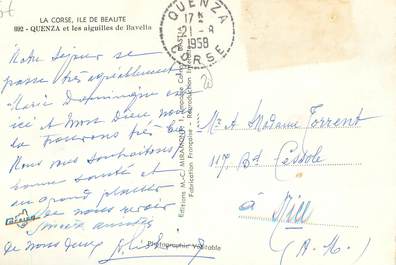 LA CORSE, ILE DE BEAUTE
892 - QUENZA et les aiguilles de Bavella
QUENZA
17 H
21 - 8
1958
CORSE
Notre séjour se
passe très agréablement
Marie Dominique est
ici et mon Dieu nous
la trouvons très
Nous vous souhaitons
bonne santé et
au grand plaisir
de vous revoir
Amitiés
de nous deux
Editions M.-C. MIRAMONT
Fabrication Française - Reproduction Inter
Photographie Véritable
Mr & Madame Torrent
117 Bd Cessole
à Nice
(A.M.)